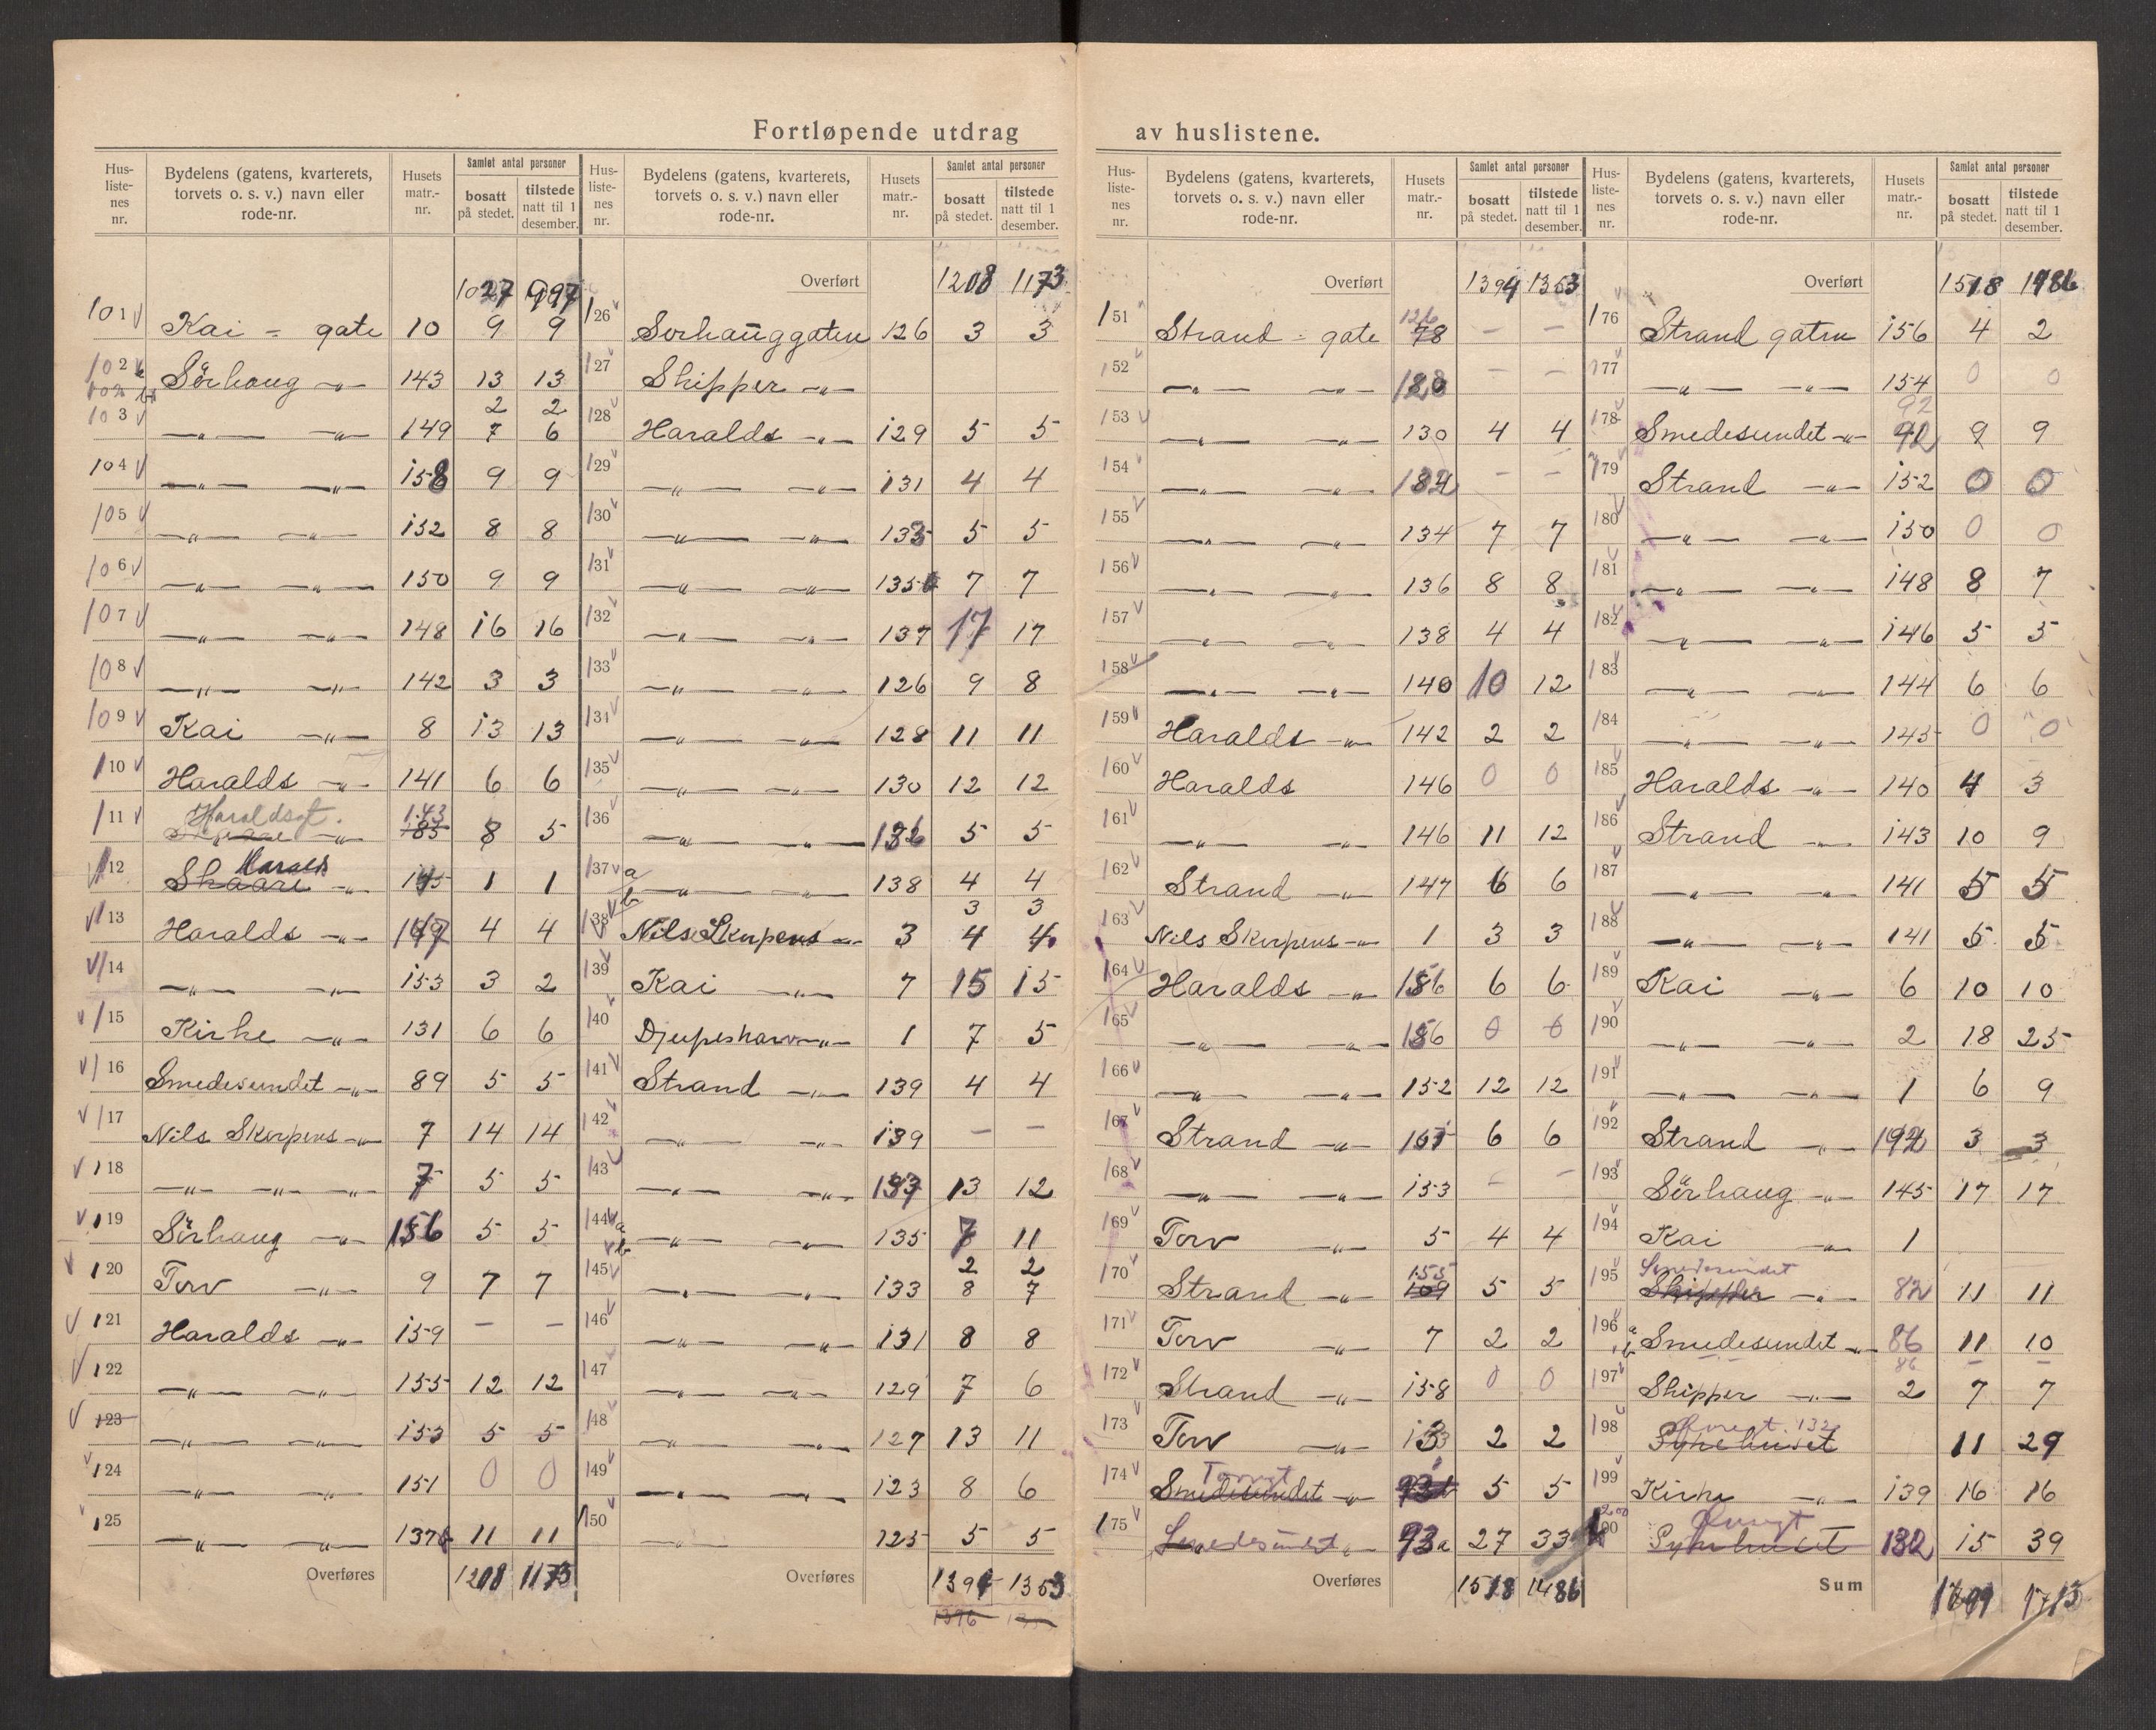 Fortløpende utdrag av huslistene.
Hus-liste-nes nr. | Bydelens (gatens, kvarterets, torvets o. s. v.) navn eller rode-nr. | Husets matr.-nr. | Samlet antal personer bosatt på stedet. | tilstede natt til 1 desember.
1027 997
101 Kai - gate 10 9 9
102 a Sørhaug -"- 143 13 13
102 b 2 2
103 -"- -"- 149 7 6
104 -"- -"- 158 9 9
105 -"- -"- 152 8 8
106 -"- -"- 150 9 9
107 -"- -"- 148 16 16
108 -"- -"- 142 3 3
109 Kai -"- 8 13 13
110 Haralds -"- 141 6 6
111 Haraldsgt. -"- 143 8 5
112 Skaare Haralds -"- 145 1 1
113 Haralds -"- 147 4 4
114 -"- -"- 153 3 2
115 Kirke -"- 131 6 6
116 Smedesundet -"- 89 5 5
117 Nils Skerpens -"- 7 14 14
118 -"- -"- -"- 7 5 5
119 Sørhaug -"- 156 5 5
120 Torv -"- 9 7 7
121 Haralds -"- 159 - -
122 -"- -"- 155 12 12
123 -"- -"- 153 5 5
124 -"- -"- 151 0 0
125 -"- -"- 137 11 11
Overføres 1208 1173
Hus-liste-nes nr. | Bydelens (gatens, kvarterets, torvets o. s. v.) navn eller rode-nr. | Husets matr.-nr. | Samlet antal personer bosatt på stedet. | tilstede natt til 1 desember.
Overført 1208 1173
126 Sørhauggaten 126 3 3
127 Skipper -"-
128 Haralds -"- 129 5 5
129 -"- -"- 131 4 4
130 -"- -"- 133 5 5
131 -"- -"- 135 7 7
132 -"- -"- 137 17 17
133 -"- -"- 126 9 8
134 -"- -"- 128 11 11
135 -"- -"- 130 12 12
136 -"- -"- 132 5 5
137 a -"- -"- 138 4 4
b 3 3
138 Nils Skerpens -"- 3 4 4
139 Kai -"- 7 15 15
140 Djupeshavn -"- 1 7 5
141 Strand -"- 139 4 4
142 -"- -"- 139 - -
143 -"- -"- 137 13 12
144 a -"- -"- 135 7 11
b 2 2
145 -"- -"- 133 8 7
146 -"- -"- 131 8 8
147 -"- -"- 129 7 6
148 -"- -"- 127 13 11
149 -"- -"- 123 8 6
150 -"- 125 5 5
Overføres 1394 1353
1396
Hus-liste-nes nr. | Bydelens (gatens, kvarterets, torvets o. s. v.) navn eller rode-nr. | Husets matr.-nr. | Samlet antal personer bosatt på stedet. | tilstede natt til 1 desember.
Overført 1394 1353
151 Strand - gate 126 78 - -
152 -"- -"- 128 - -
153 -"- -"- 130 4 4
154 -"- -"- 132 - -
155 -"- -"- 134 7 7
156 -"- -"- 136 8 8
157 -"- -"- 138 4 4
158 -"- -"- 140 10 12
159 Haralds -"- 142 2 2
160 Haralds 146 0 0
161 -"- -"- 146 11 12
162 Strand -"- 147 6 6
163 Nils Skerpens -"- 1 3 3
164 Haralds -"- 156 6 6
165 -"- -"- 156 0 0
166 -"- -"- 152 12 12
167 Strand -"- 6 6
168 -"- -"- 153 - -
169 Torv -"- 5 4 4
170 Strand -"- 155 109 5 5
171 Torv -"- 7 2 2
172 Strand -"- 158 0 0
173 Torv -"- 2 2
174 Smedesundet Torvgt -"- 5 5
175 Smedesundet -"- 93a 27 33
Overføres 1518 1486
Hus-liste-nes nr. | Bydelens (gatens, kvarterets, torvets o. s. v.) navn eller rode-nr. | Husets matr.-nr. | Samlet antal personer bosatt på stedet. | tilstede natt til 1 desember.
Overført 1518 1486
176 Strand gaten 156 4 2
177 -"- -"- 154 0 0
178 Smedesundet -"- 92 9 9
179 Strand -"- 152 0 0
180 -"- -"- 150 0 0
181 -"- -"- 148 8 7
182 -"- -"- 146 5 5
183 -"- -"- 144 6 6
184 -"- -"- 145 0 0
185 Haralds -"- 140 4 3
186 Strand -"- 143 10 9
187 -"- -"- 141 5 5
188 -"- -"- 141 5 5
189 Kai -"- 6 10 10
190 -"- -"- 2 18 25
191 -"- -"- 1 6 9
192 Strand -"- 3 3
193 Sørhaug -"- 145 17 17
194 Kai -"- 1
195 Skipper Smedesundet -"- 82 11 11
196 a Smedesundet -"- 86 11 10
b 86 - -
197 Skipper -"- 2 7 7
198 Sykehuset 132 11 29
199 Kirke -"- 139 16 16
200 Sykehuset 132 15 39
Sum 1713